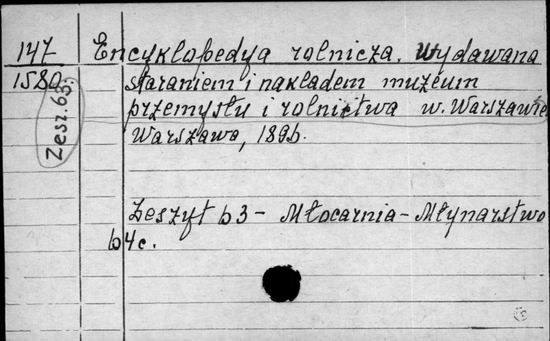 147 Encyklopedya rolnicza. Wydawana
1580 staraniem i nakładem muzeum
Zesz. 63. przemysłu i rolnictwa w. Warszawie
Warszawa, 1896.
Zeszyt 63 - Młocarnia - Młynarstwo
64c.